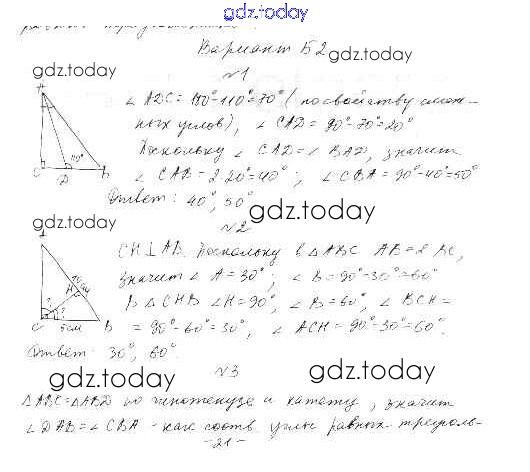 gdz.today
Вариант Б2
gdz.today
gdz.today
№1
∠ADC = 180° - 110° = 70° (по свойству смеж-
ных углов), ∠CAD = 90° - 70° = 20°
Поскольку ∠CAD = ∠BAD, значит
∠CAB = 2·20° = 40°; ∠CBA = 90° - 40° = 50°
A
110°
C D B
Ответ: 40°, 50°
gdz.today
№2
gdz.today
CH⊥AB. Поскольку в ΔABC AB = 2 BC,
значит ∠A = 30°; ∠B = 90° - 30° = 60°
В ΔCHB ∠H = 90°, ∠B = 60°, ∠BCH =
= 90° - 60° = 30°, ∠ACH = 90° - 30° = 60°.
A
10 см
H
? ?
C 5см B
Ответ: 30°, 60°.
№3
gdz.today
gdz.today
ΔABC = ΔABD по гипотенузе и катету, значит
∠DAB = ∠CBA - как соотв. углы равных треуголь-
-21-